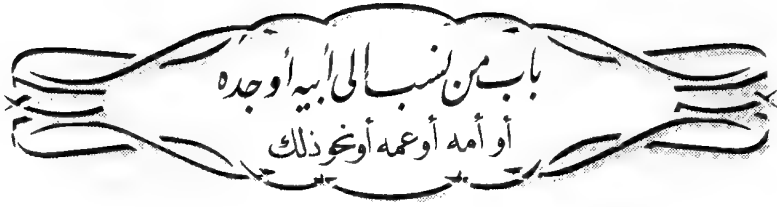 باب من نسب الى أبيه أو جده
أو أمه أو عمه أو نحو ذلك